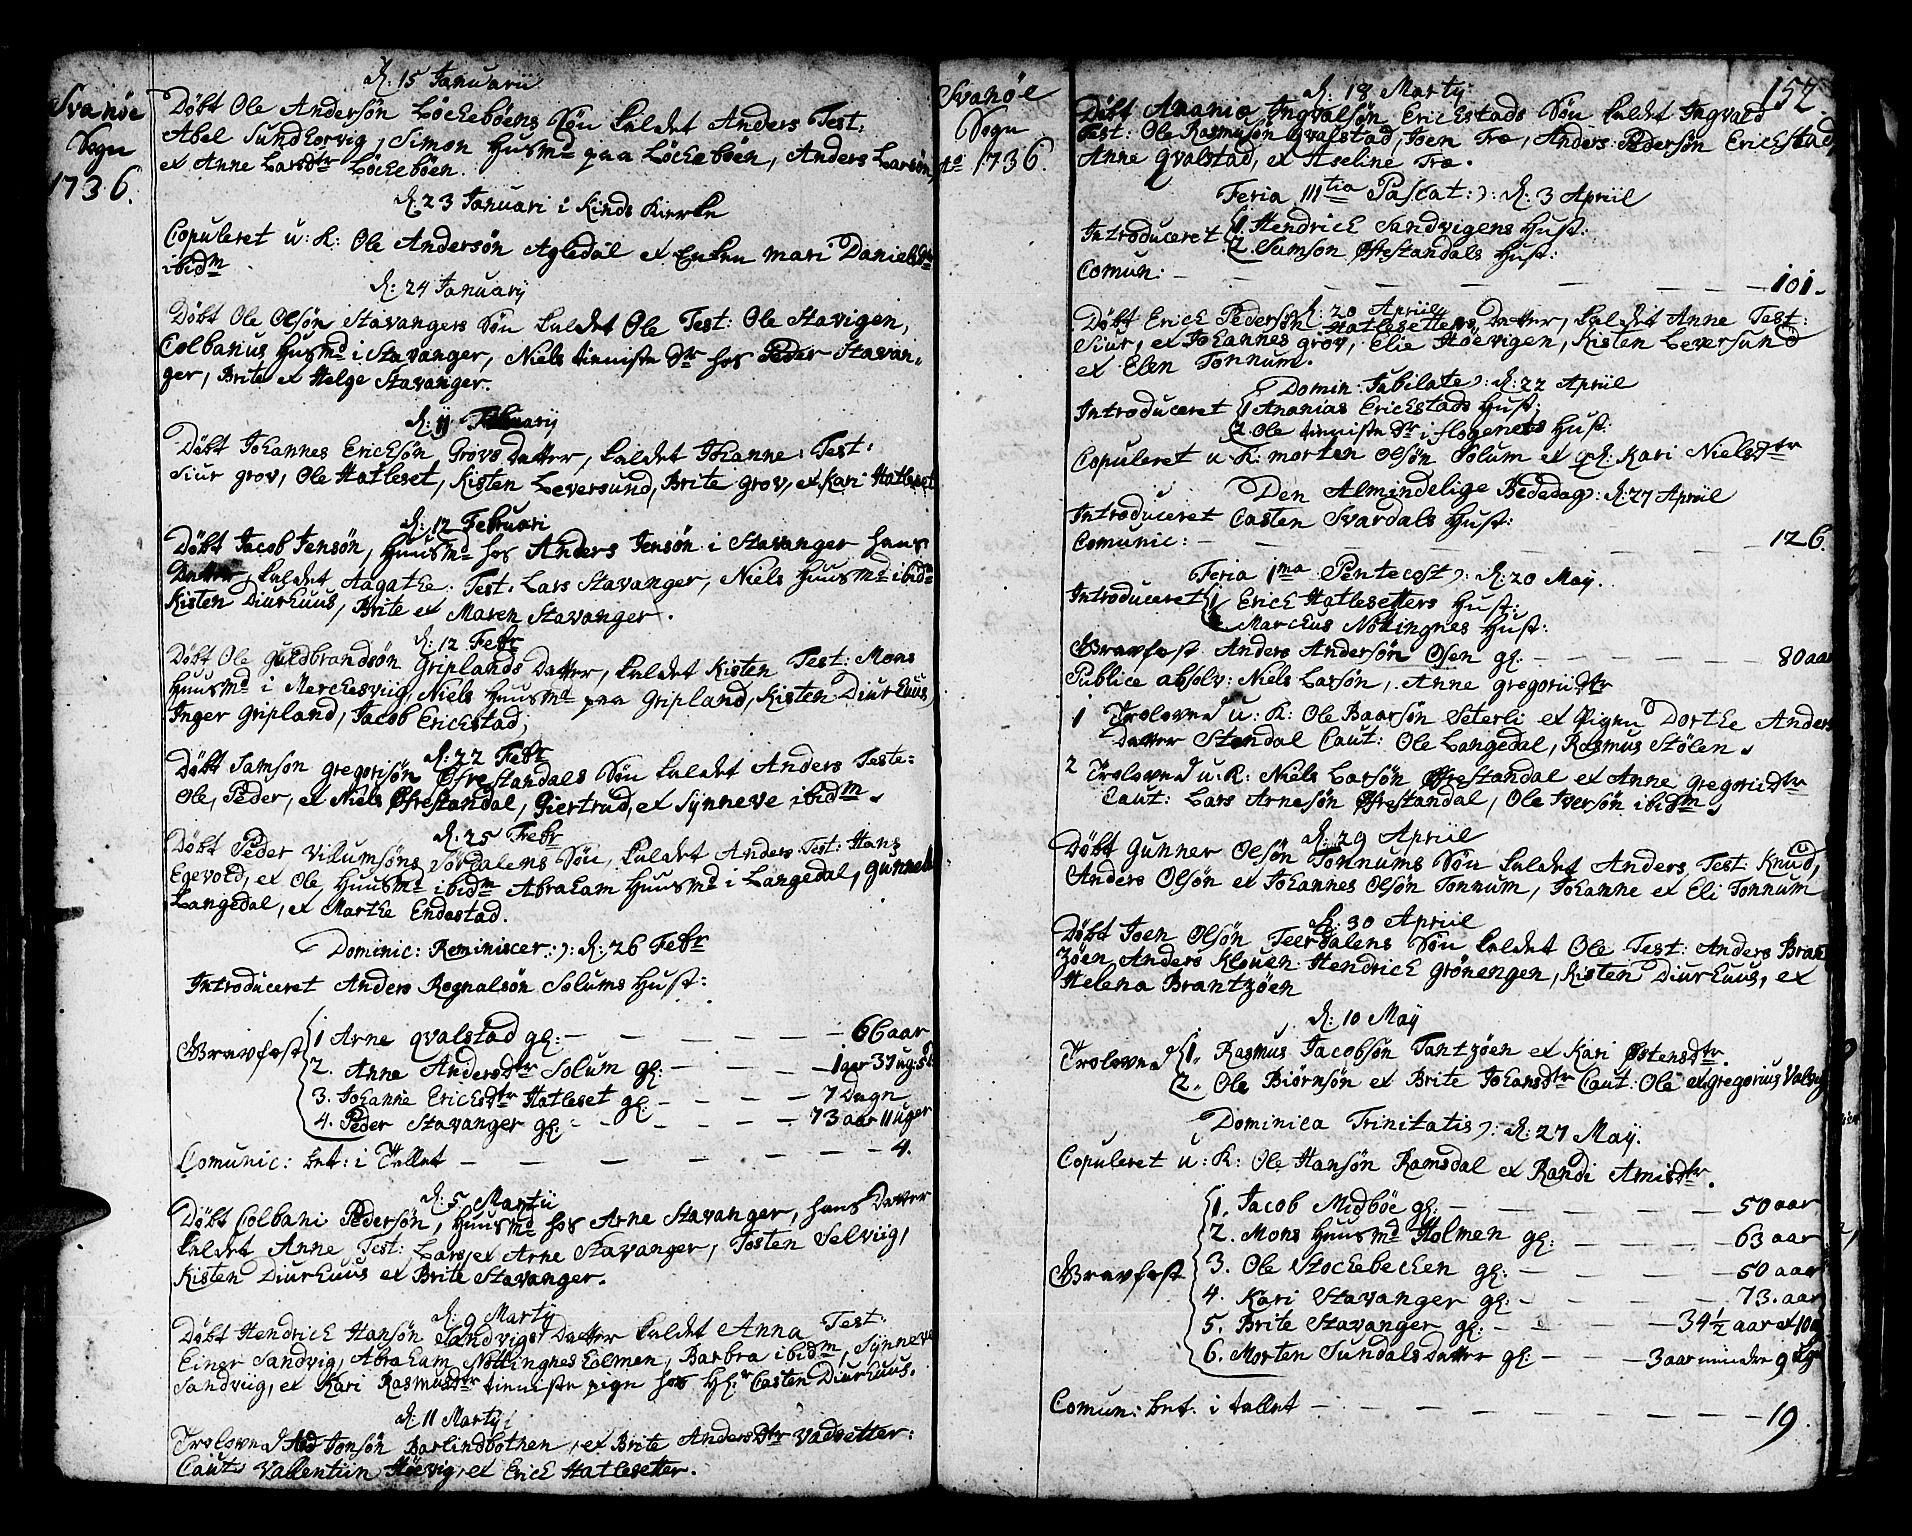 Svanöe
Sogn
1736.
d. 15 Januarii
Döbt Ole Andersön Löckeböens Sön kaldet Anders Test:
Abel Sundhorvig, Simon Husmd paa Löckeböen, Anders Larsön,
ex Anne Larsdtr Löckeböen.
d. 23 Januari i Kinds Kierke
Copuleret u: K: Ole Andersön Agledal ex Enken Mari Danielsdtr
ibidm
d. 24 Januarÿ
Döbt Ole Olsön Stavangers Sön kaldet Ole Test: Ole Stavigen,
Colbanus Husmd i Stavanger, Niels tieniste dr hos Peder Stavan-
ger, Brite ex Helge Stavanger.
d. 11 Februarÿ
Döbt Johannes Ericksön Grovs Datter, kaldet Johanne. Test:
Siur grov, Ole Hatleset, Kisten Leversund, Brite grov, ex Kari Hatleset
d. 12 Februari
Döbt Jacob Jensön, Huusmd hos Anders Jensön i Stavanger hans
Datter, kaldet Aagathe. Test: Lars Stavanger, Niels Huusmd ibidm
Kisten Diurhuus, Brite ex Maren Stavanger.
d. 12 Febr
Döbt Ole Guldbrandsön Griplands Datter, kaldet Kisten Test: Mons
Huusmd i Merckesviig, Niels Huusmd paa Gripland, Kisten Diurhuus,
Inger Gripland, Jacob Erickstad,
d. 22 Febr
Döbt Samson Gregorisön Öfrestandals Sön kaldet Anders Teste:
Ole, Peder, ex Niels Öfrestandal, Giertrud, ex Synneve ibidm.
d. 25 Febr
Döbt Peder Vilumsöns Sördalens Sön, kaldet Anders Test: Hans
Egevold, ex Ole Huusmd ibidm Abraham Huusmd i Langedal, Gunnel
Langedal, ex Marthe Endestad.
Dominic: Reminiscer: ): d. 26 Febr
Introduceret Anders Rognalsön Solums Hust:
Gravfæst 1 Arne Qvalstad gl: — 66 aar
2. Anne Andersdtr Solum gl: — 1 aar 37 ug: 5
3. Johanne Ericksdtr Hatleset gl: — 7 Dagn
4. Peder Stavanger gl: — 73 aar 11 uger
Comunic: bet: i Tallet — 4.
d. 5 Martii
Döbt Colbani Pedersön, Huusmd hos Arne Stavanger, hans Datter
kaldet Anne Test: Lars, ex Arne Stavanger, Tosten Selviig,
Kisten Diurhuus ex Brite Stavanger.
d. 9 Martÿ
Döbt Hendrich Hansön Sandvigs Datter kaldet Anna Test:
Einer Sandvig, Abraham Nottingnesholmen, Barbra ibidm, Synneve
Sandviig, ex Kari Rasmusdtr tieniste pige hos Hr Casten Diurhuus.
d. 11 Martÿ
Troloved Jonsön Barlindbothen, ex Brite Andersdtr Vadsetter:
Caut: Vallentin Höevig, ex Erick Hatlesetter.
Svanöe
Sogn
Ao 1736.
152
d. 18 Martÿ
Döbt Anania Ingvalsön Erickstads Sön kaldet Ingvald
Test: Ole Rasmusön Qvalstad, Joen Træ, Anders Pedersön Erickstad,
Anne Qvalstad, ex Aseline Træ.
Feria IIItia Pascat: ): d. 3 Apriil
Introduceret 1. Hendrick Sandvigens Hust:
2. Samson Öfrestandals Hust:
Comun: — 101.
d. 20 Apriil
Döbt Erick Pedersön Hatlesetters Datter, kaldet Anne Test:
Siur, ex Johannes grov, Elie Höevigen, Kisten Leversund
ex Elen Tonnum.
Domin: Jubilate ): d. 22 Apriil
Introduceret 1 Ananias Erickstads Hust:
2. Ole tieniste dr i flogenets Hust:
Copuleret u K: Morten Olsön Solum ex pl: Kari Nielsdtr
Den Almindelige Bededag ): d. 27 Apriil
Introduceret Casten Svardals Hust:
Comunic: — 126.
Feria 1ma Pentecost ): d. 20 Maÿ.
Introduceret 1 Erick Hatlesetters Hust:
2 Marckus Nottingnes Hust:
Gravfæst Anders Andersön Osen gl: — 80 aar
Publice absolv: Niels Larsön, Anne Gregoriidtr
1 Troloved u: K: Ole Baarsön Seterli ex Pigen Dorthe Anders
Datter Stendal Caut: Ole Langedal, Rasmus Stölen.
2 Troloved u: K: Niels Larsön Öfrestandal ex Anne Gregoriidtr
Caut: Lars Arnesön Öfrestandal, Ole Iversön ibidm.
d. 29 Apriil
Döbt Gunner Olsön Tonnums Sön kaldet Anders Test: Knud,
Anders Olsön ex Johannes Olsön Tonnum, Johanne ex Eli Tonnum
d. 30 Apriil
Döbt Joen Olsön Teerdalens Sön kaldet Ole Test: Anders Brant
zöen, Anders Kloven Hendrick Grönengen, Kisten Diurhuus, ex
Helena Brantzöen
d. 10 Maÿ
Troloved 1. Rasmus Jacobsön Tantzöen ex Kari Östensdtr.
2. Ole Biörnsön ex Brite Johansdtr Caut: Ole ex Gregorius Valvig
Dominica Trinitatis ): d. 27 Maÿ.
Copuleret u: K: Ole Hansön Ramsdal ex Randi Arnisdtr.
Gravfæst 1. Jacob Midböe gl: — 50 aar
2. Mons Huusmd Holmen gl: — 63 aar
3. Ole Stockebecken gl: — 50 aar
4. Kari Stavanger gl: — 73. aar
5. Brite Stavanger gl: — 34½ aar ex 10
6. Morten Sundals Datter gl: — 3 aar mindre 9 uger
Comun: bet. i tallet — 19.